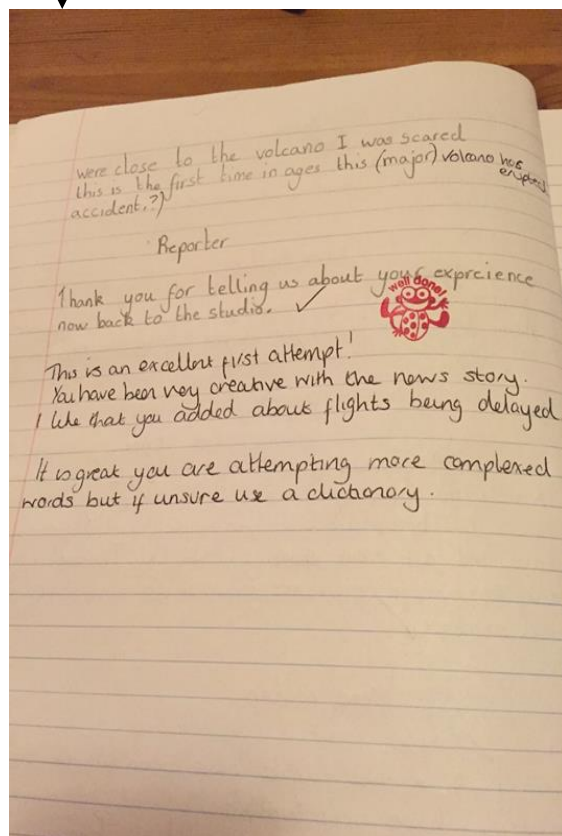 were close to the volcano I was scared
this is the first time in ages this (major) volcano has
erupted
accident.?)
Reporter
Thank you for telling us about your exprecience
now back to the studio.
well done!
This is an excellent first attempt!
You have been very creative with the news story.
I like that you added about flights being delayed
It is great you are attempting more complexed
words but if unsure use a dictionary.